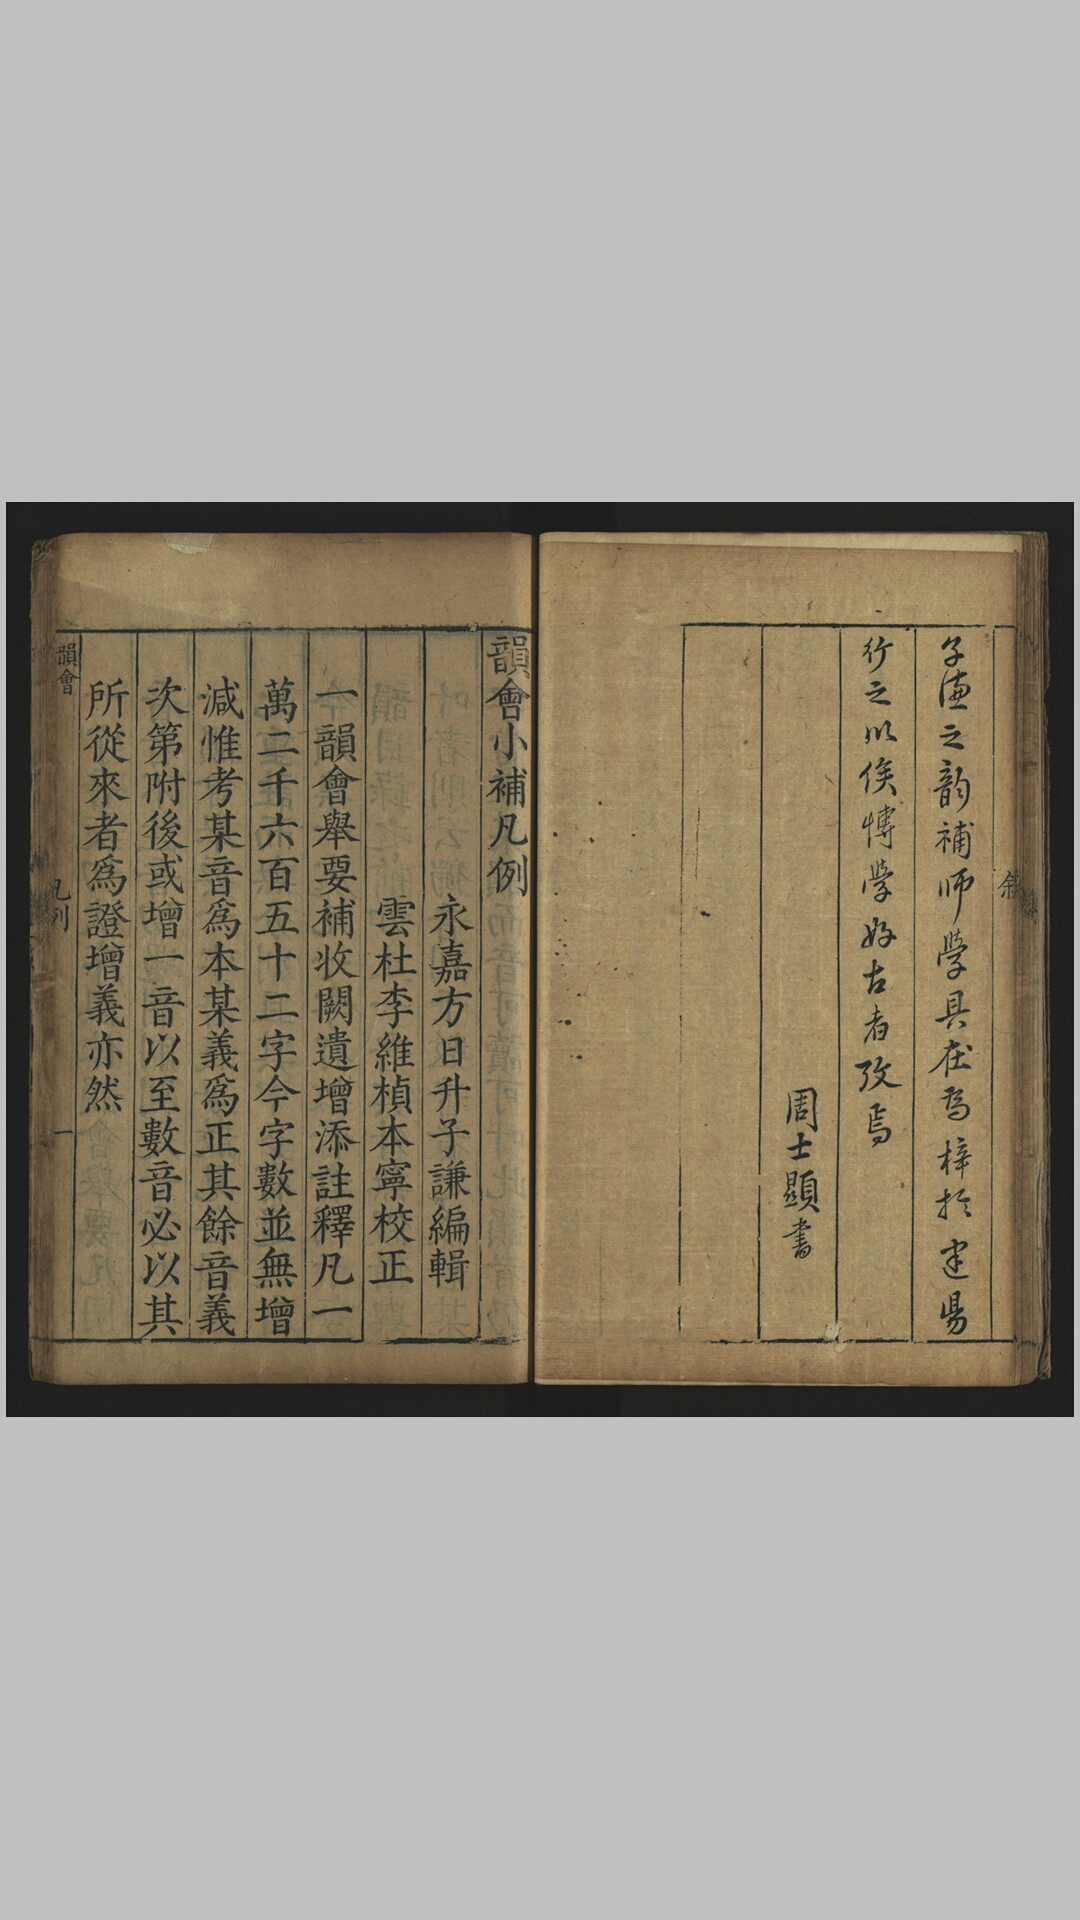 子謙之韵補師學具在為梓於建易
行之以俟博學好古者攷焉
周士顯書
韻會小補凡例
永嘉方日升子謙編輯
雲杜李維楨本寧校正
一韻會舉要補收闕遺增添註釋凡一
萬二千六百五十二字今字數並無增
減惟考某音爲本某義爲正其餘音義
次第附後或增一音以至數音必以其
所從來者爲證增義亦然
韻會
凡例
一